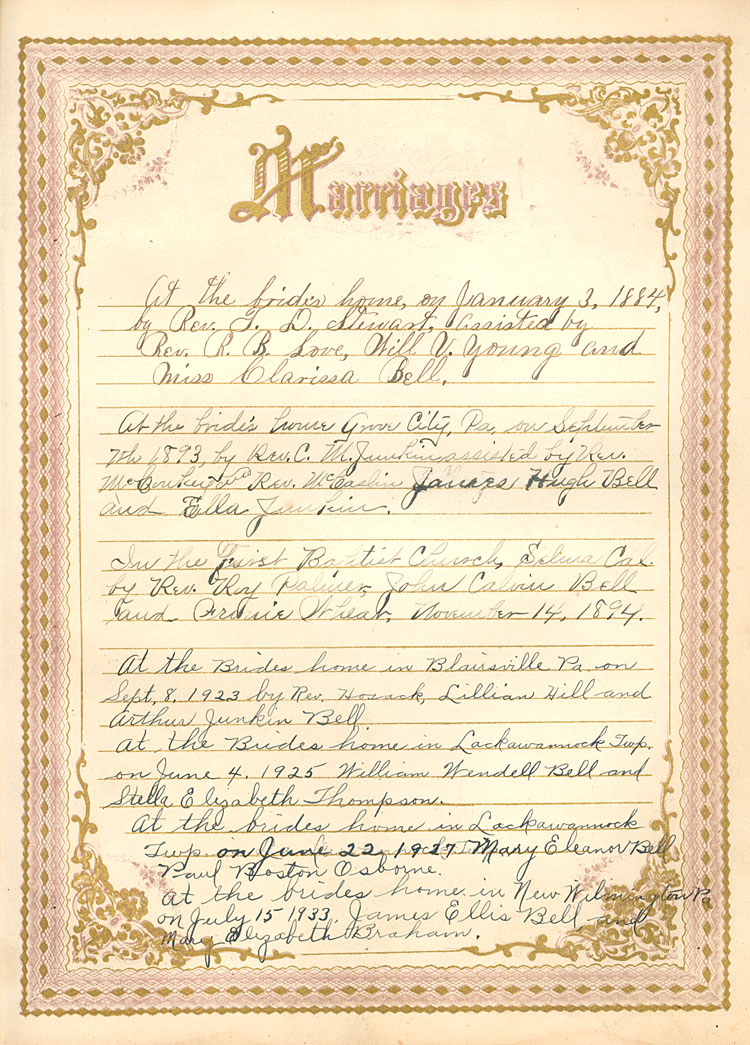 Marriages
At the brides home, on January 3, 1884,
by Rev. T. D. Stewart, assisted by
Rev. R. B. Love, Will V. Young and
Miss Clarissa Bell.
At the brides home Grove City, Pa, on September
7th 1893, by Rev. C. M. Junkin assisted by Rev.
and Rev. McCaslin James Hugh Bell
and Ella Junkin.
In the First Baptist Church, Selma Cal.
by Rev. Roy Palmer, John Calvin Bell
and Whear, November 14, 1894.
At the Brides home in Blairsville Pa. on
Sept, 8, 1923 by Rev. Hosack, Lillian Hill and
Arthur Junkin Bell
At the Brides home in Lackawannock Twp.
on June 4. 1925 William Wendell Bell and
Stella Elizabeth Thompson.
At the brides home in Lackawannock
Twp. on June 22, 1927 Mary Eleanor Bell
Paul Boston Osborne.
At the brides home in New Wilmington Pa
on July 15 1933, James Ellis Bell and
Mary Elizabeth Braham.